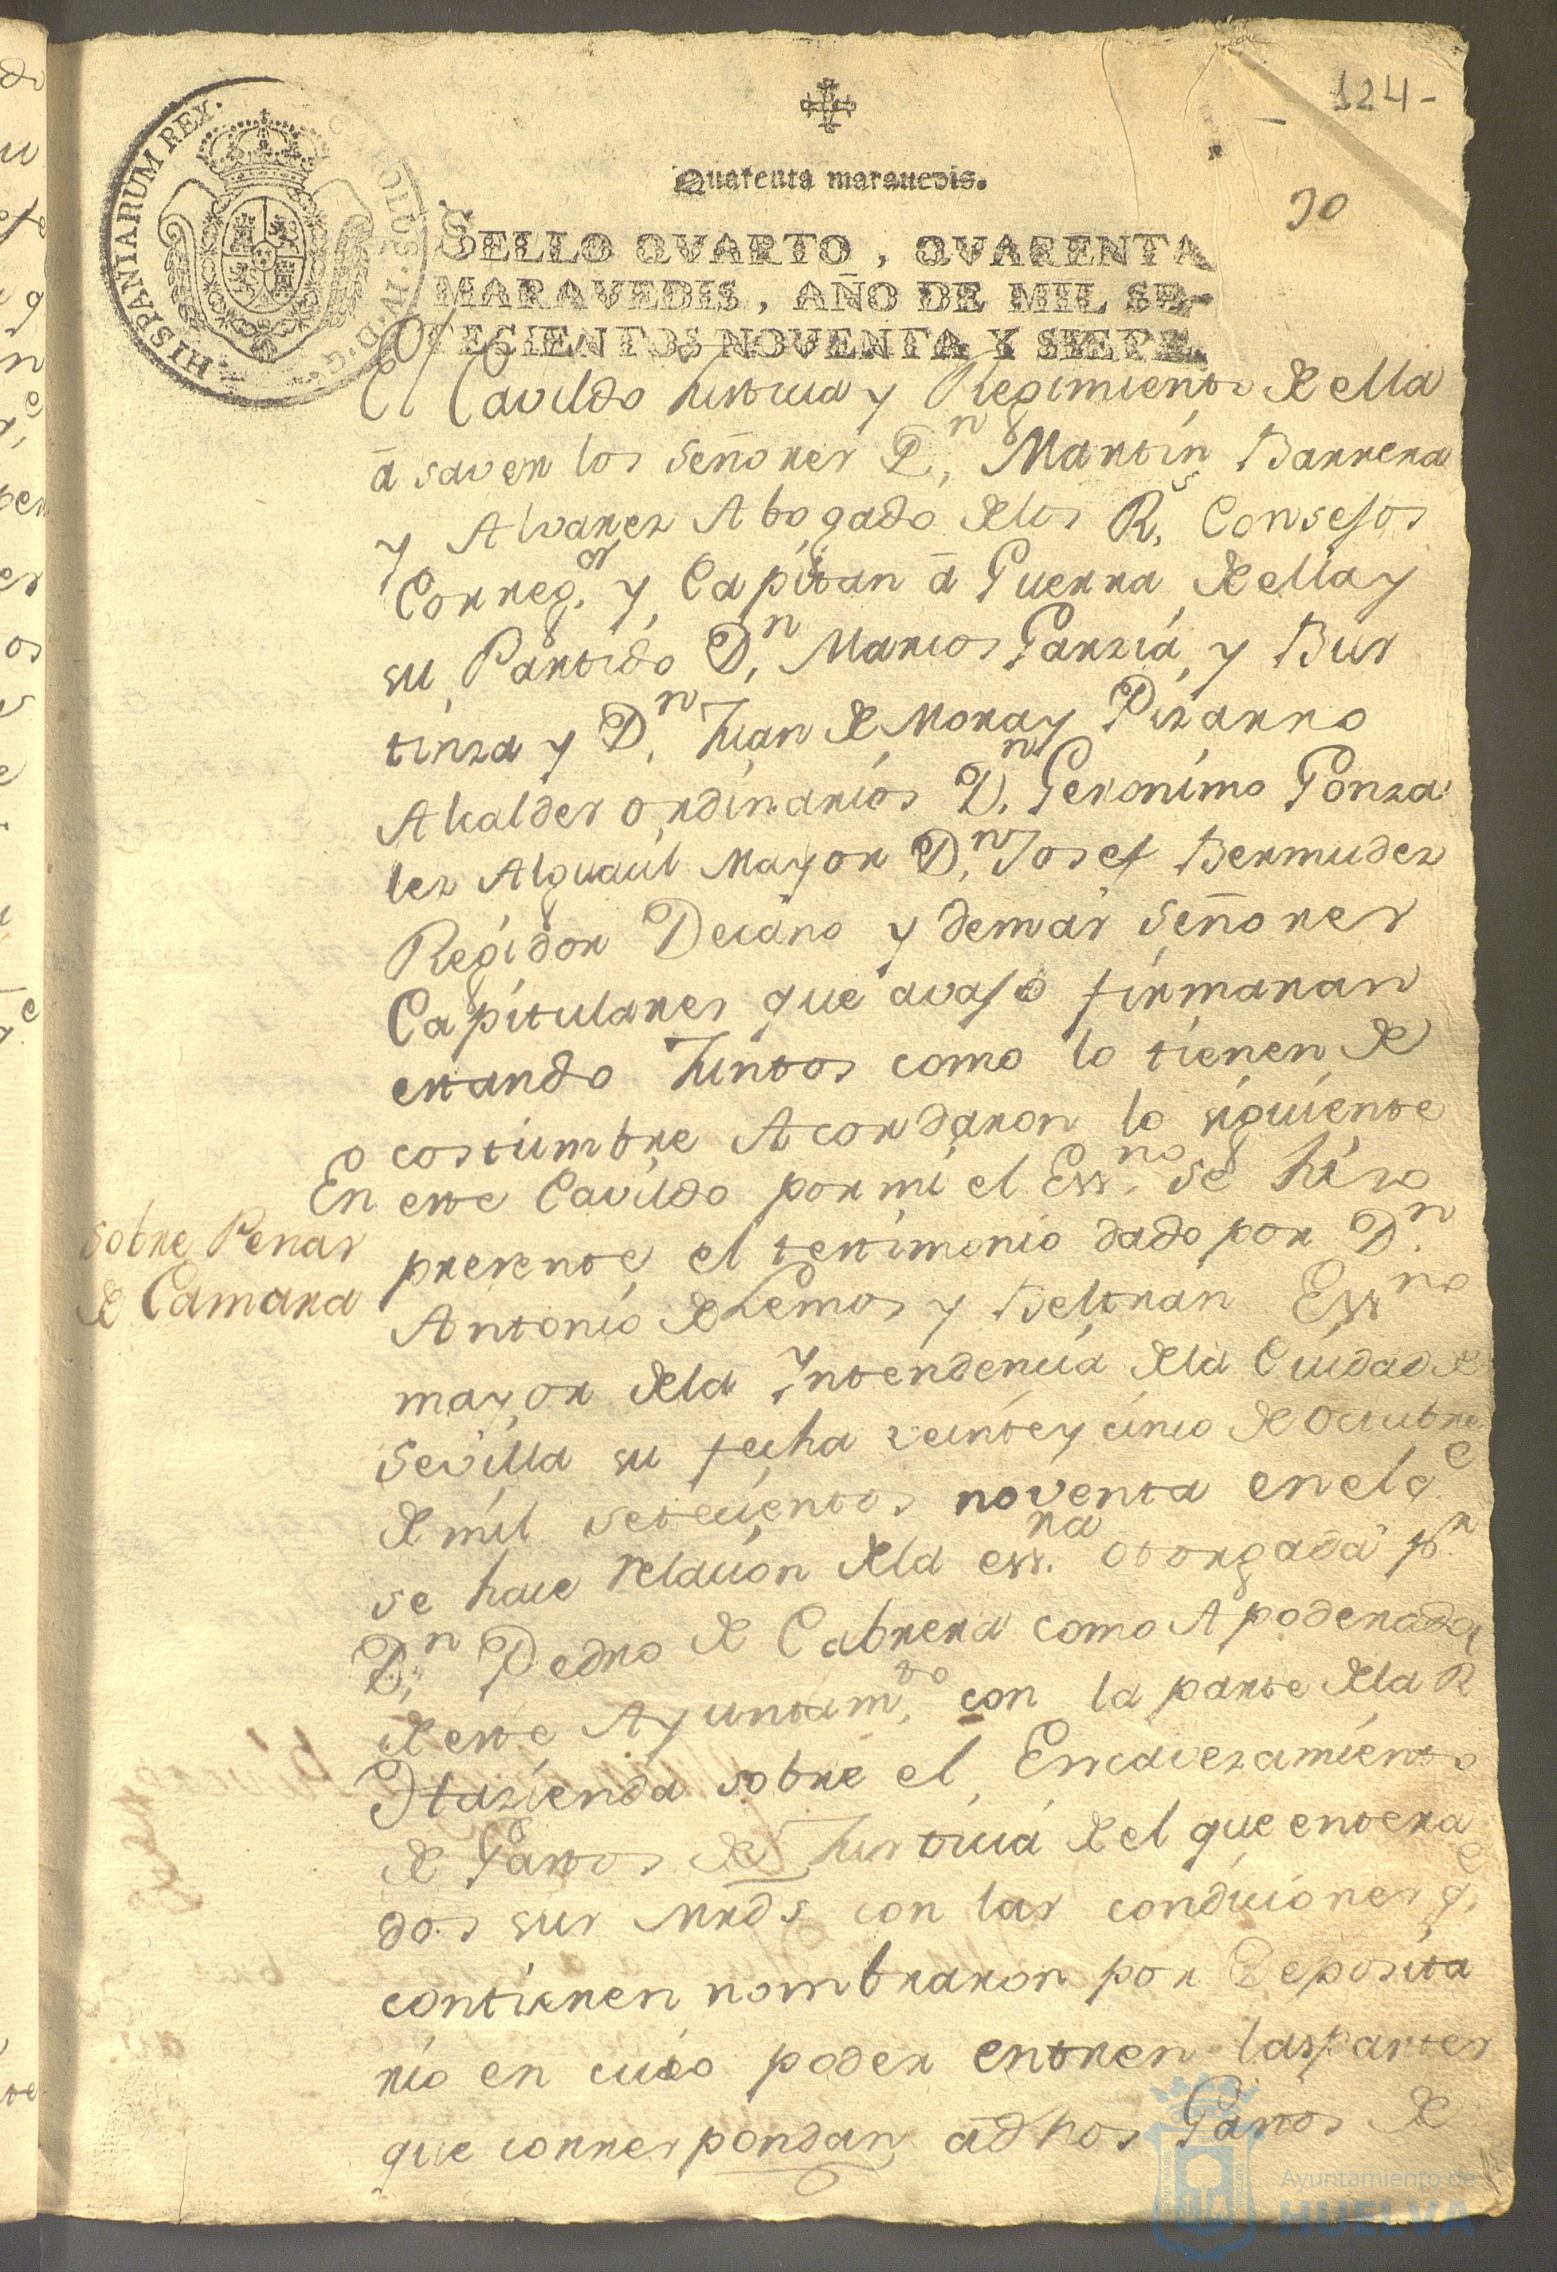 124-
Quarenta maravedis.
90
SELLO QVARTO, QVARENTA
MARAVEDIS, AÑO DE MIL SE-
TECIENTOS NOVENTA Y SIETE.
HISPANIARUM REX.
CAROLUS. IV. D. G.
El Cavildo Justicia y Regimiento de ella
á saver los señores Dn. Martín Barrera
y Alvarez Abogado delos Rs. Consejos
Correg.or y Capitan á Guerra de ella y
su Partido Dn. Marcos Garzia y Bus
tinza y Dn. Juan de Mora y Pizarro
Alcaldes ordinarios Dn. Geronimo Gonza
lez Alguacil Mayor Dn. Josef Bermudez
Regidor Decano y demas señores
Capitulares que avajo firmaran
estando Juntos como lo tienen de
costumbre Acordaron lo siguiente
Sobre Penas
de Camara
En este Cavildo por mi el Ess.no se hizo
presente el testimonio dado por Dn.
Antonio de Lemos y Beltran Essno
mayor dela Yntendencia dela Ciudad de
Sevilla su fecha veinte y cinco de Octubre
de mil setecientos noventa en el q.e
se hace relacion dela ess.ra otorgada pr
Dn. Pedro de Cabrera como Apoderado
de este Ayuntam.to con la parte dela R
Hazienda sobre el Encavezamiento
de Gastos de Justicia de el que entera
dos sus mrds con las condiciones q.e
contienen nombraron por Deposita
rio en cuio poder entren las partes
que correspondan á dhos Gastos de
Ayuntamiento de
HUELVA